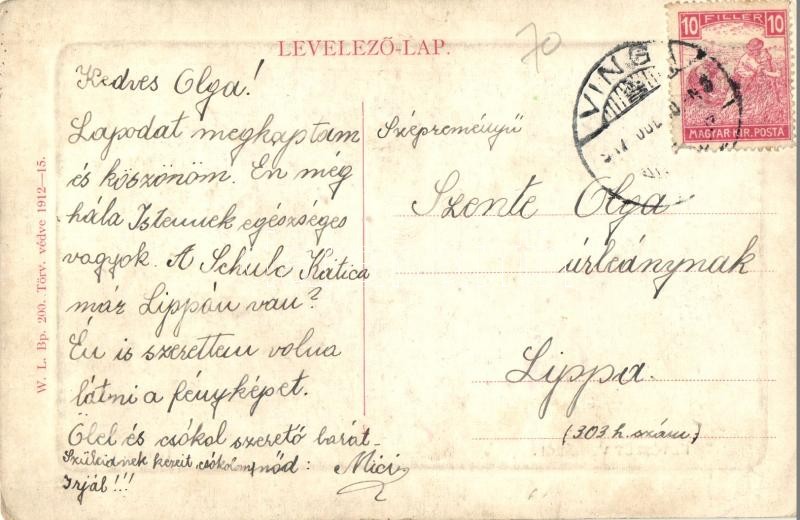 LEVELEZŐ-LAP.
70
10 FILLER 10
MAGYAR KIR. POSTA
VINGA
Kedves Olga!
Lapodat megkaptam
és köszönöm. Én még
hála Istennek egészséges
vagyok. A Schulc Katica
már Lippán van?
Én is szerettem volna
látni a fényképet.
Ölel és csókol szerető barát-
nőd: Mici
Szüleidnek kezeit csókolom
Irjál!!!
Szépreményű
Szente Olga
úrleánynak
Lippa.
(303 h. szám)
W. L. Bp. 200. Törv. védve 1912—15.